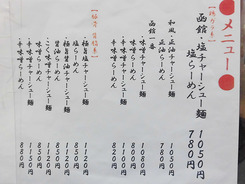 メニュー
【魚介の香】
函館・塩チャーシュー麺 1050円
塩らーめん 780円
和風・正油チャーシュー麺 1050円
正油らーめん 780円
味噌チャーシュー麺 1080円
味噌らーめん 810円
辛味噌チャーシュー麺 1100円
辛味噌らーめん 820円
極塩チャーシュー麺 1120円
塩らーめん 850円
極醤油チャーシュー麺 1120円
醤油らーめん 850円
こく味噌チャーシュー麺 1150円
味噌らーめん 850円
辛味噌チャーシュー麺 1150円
辛味噌らーめん 880円